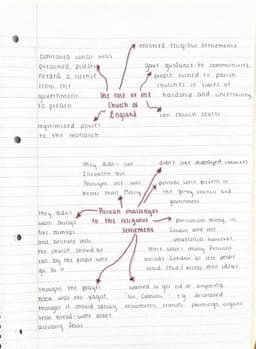 enforced religious settlements
controlled what was
preached, priests
needed a license
from the
government
to preach
gave guidance to communities,
people turned to parish
churches in times of
hardship and uncertainty
the role of the
Church of
England
ran church courts
legitimised power
to the monarch
they didn't like
Elizabeth but
thought she was
better than Mary
didn't over
puritans were present in
the privy council and
government
Puritan challenges
to the religious
settlement
they didn't
want things
like bishops
and believed that
the church should be
ran by the people who
go to it
puritanism strong in
London and the
universities however,
there weren't many Puritans
outside London as less people
could read / access their ideas
thought the prayer
book was too vague,
thought it should specify
that bread + wine aren't
actually Jesus
wanted to get rid of anything
'too Catholic' e.g. decorated
vestments, statues, paintings, organs